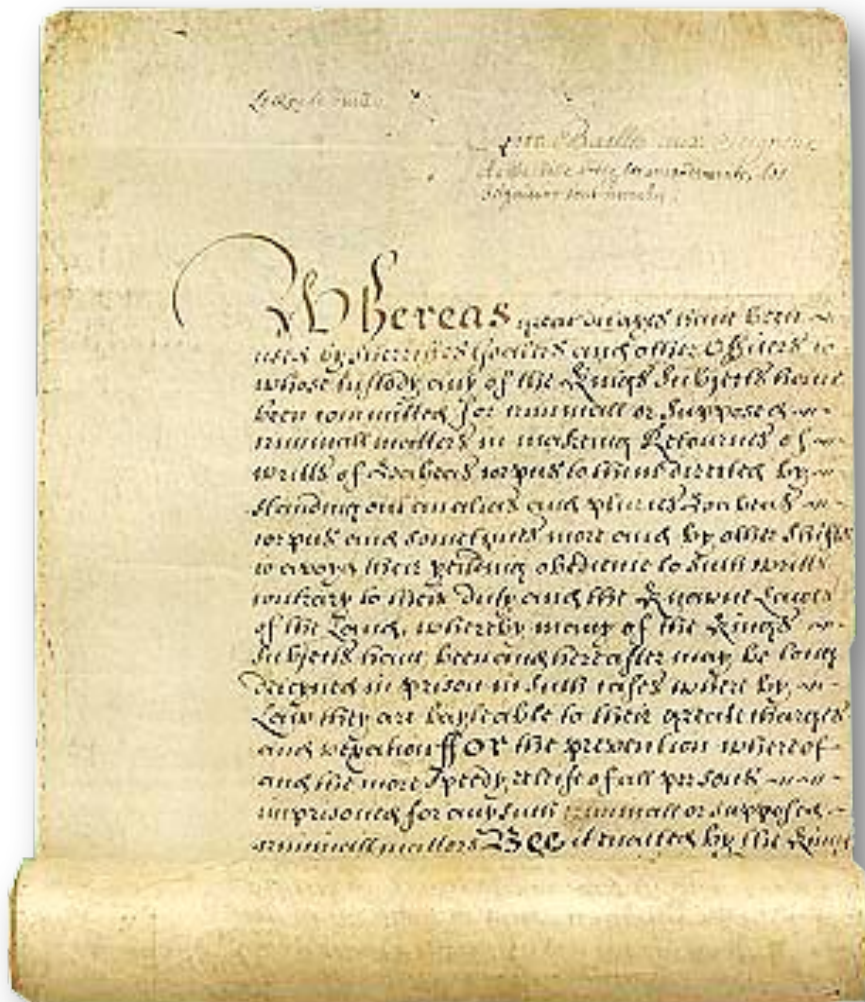 Le Roy le veult
Soit Baillé aux Seigneurs
A ceste Bille avec les amendements, les
Seigneurs sont
Whereas great delayes have been
used by Sherriffes Goalers and other Officers to
whose custody any of the Kings Subjects have
been committed for criminall or supposed
criminall matters in makeing Returnes of
writts of Habeas corpus to them directed by
standing out an alias and pluries Habeas
corpus and sometymes more and by other shifts
to avoyd their yeilding obedience to such writts
contrary to their Duty and the knowne Lawes
of the Land, whereby many of the Kings
Subjects have been and hereafter may be long
detayned in prison in such cases where by
Law they are bayleable to their greate charges
and vexation ffor the prevention whereof
and the more speedy releife of all persons
imprisoned for any such criminall or supposed
criminall matters Bee it enacted by the Kings